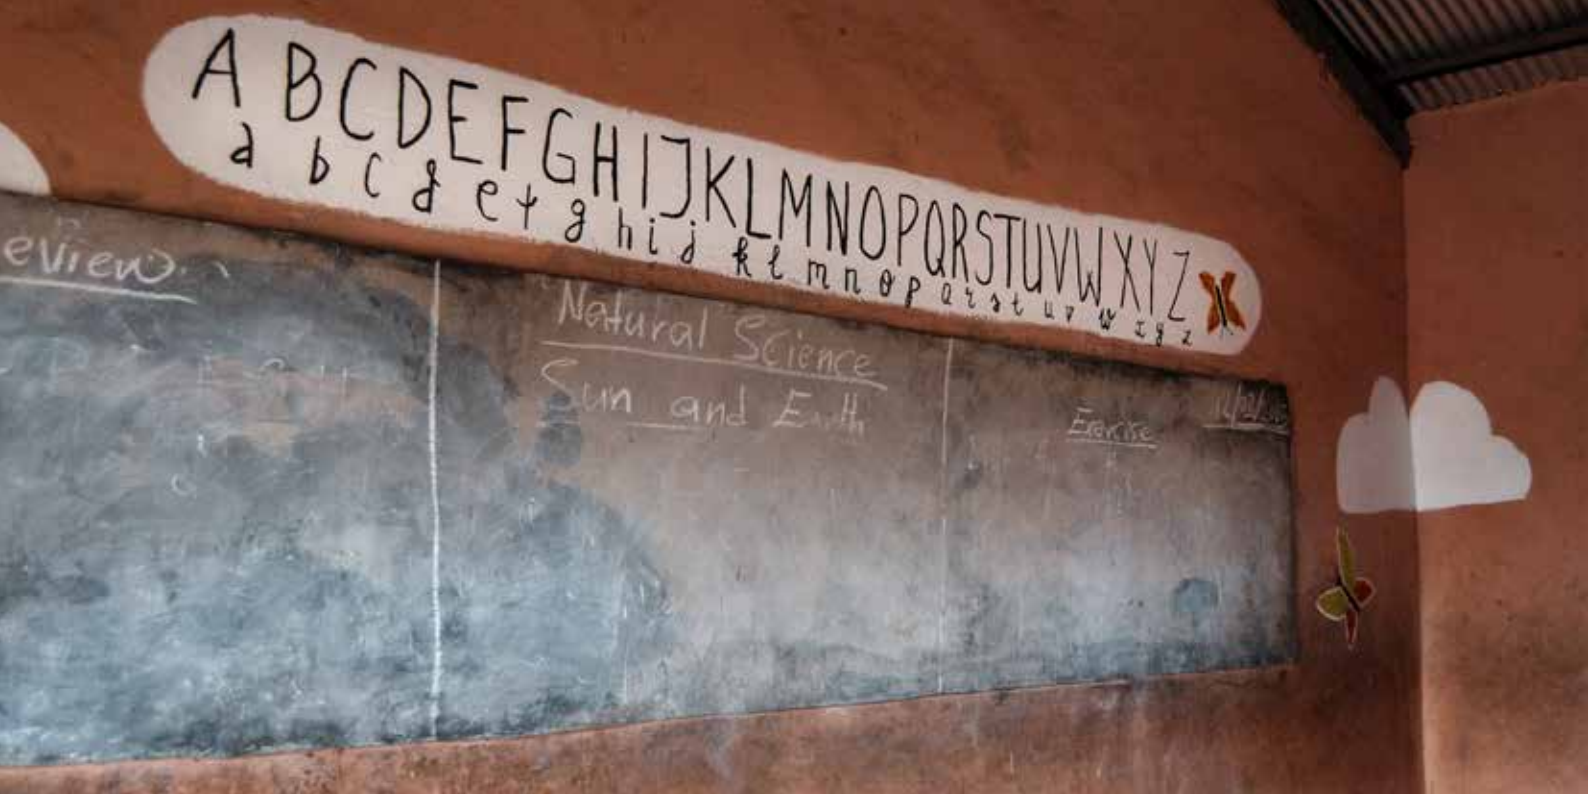 A B C D E F G H I J K L M N O P Q R S T U V W X Y Z
a b c d e f g h i j k l m n o p q r s t u v w x y z
eview.
Natural Science
Sun and Earth
Exercise